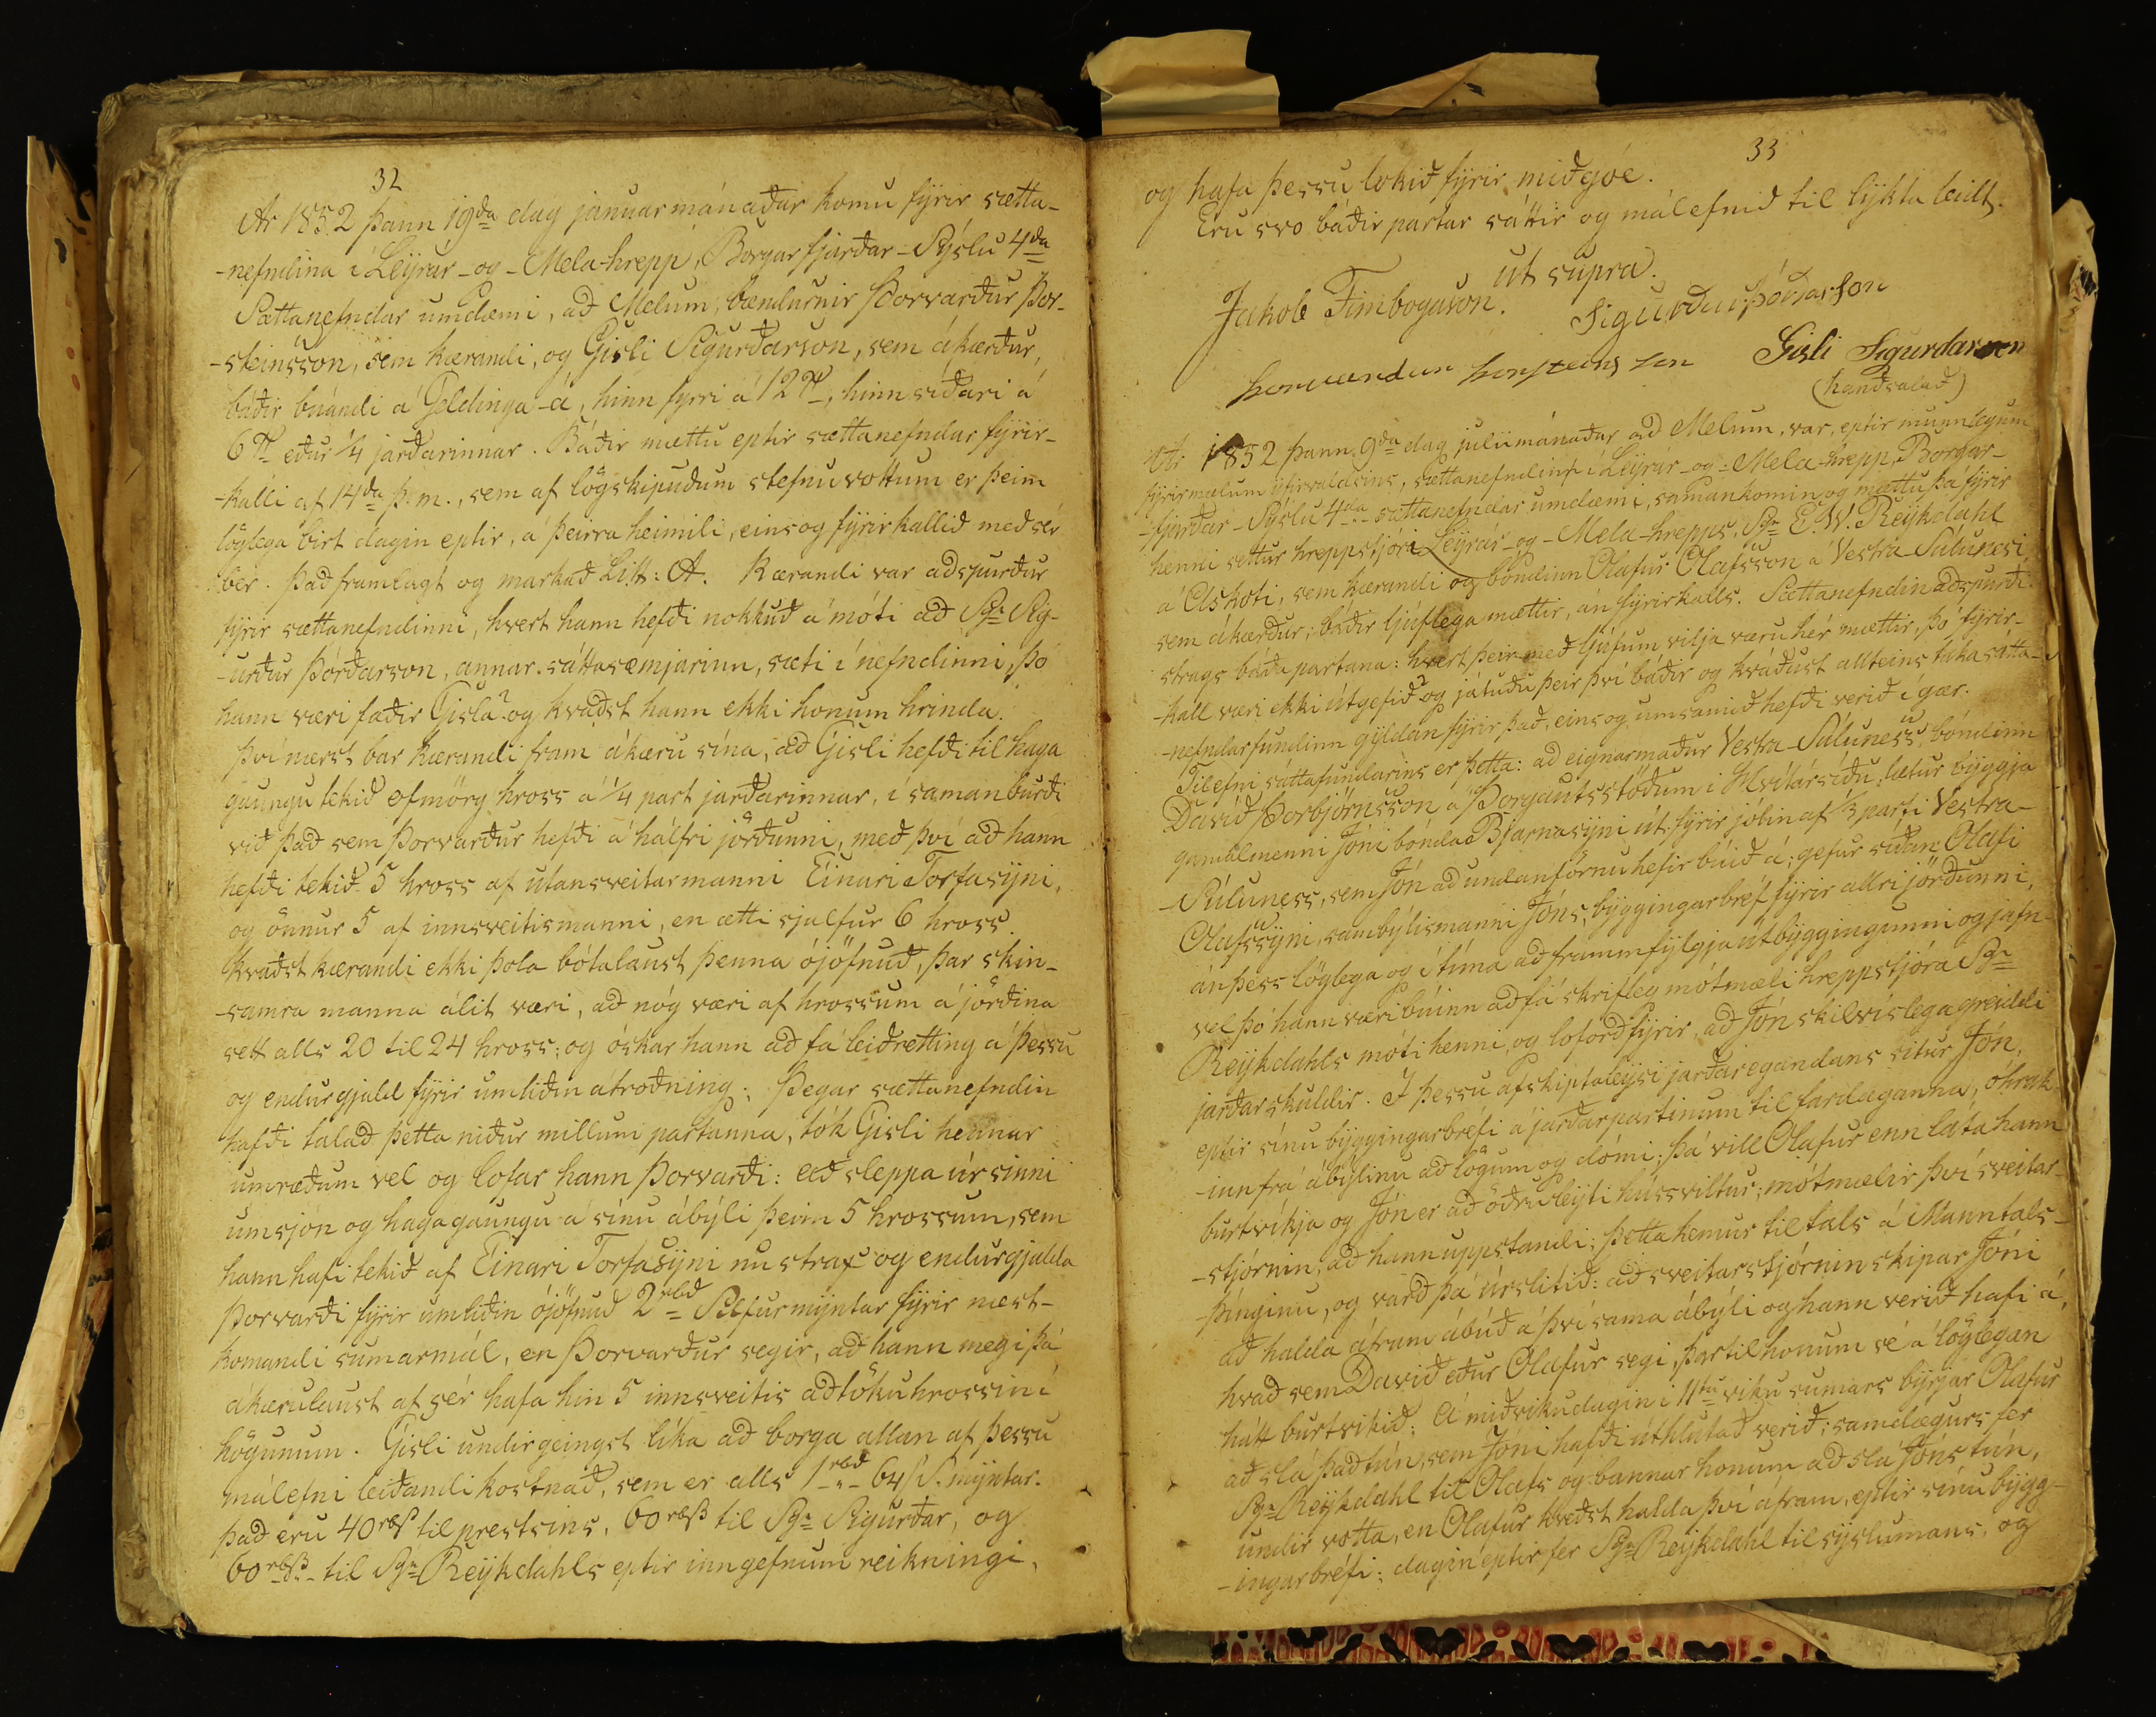 32
Ár 1852 þann 19da dag januarmánaðar komu fyrir sætta-
-nefndina í Leyrár-og-Mela-hrepp, Borgarfjarðar-Sýslu 4da
Sættanefndar umdæmi, að Melum, bændurnir Þorvarður Þor-
-steinsson, sem kærandi, og Gísli Sigurðarson, sem ákærður,
báðir búandi á Geldinga-á, hinn fyrri á 12 , hinn síðari á
6 eður 1/4 jarðarinnar. Báðir mættu eptir sættanefndar fyrir-
-kalli af 14da þ. m., sem af lögskipuðum stefnuvottum er þeim
löglega birt dagin eptir, á þeirra heimili, eins og fyrirkallið með sér
ber. Það framlagt og markað Litt: A. Kærandi var aðspurður
fyrir sættanefndinni, hvert hann hefði nokkuð á móti að Sgr Sig-
-urður Þórðarson, annar sáttasemjarinn, sæti í nefndinni, þó
hann væri faðir Gísla? og kvaðst hann ekki honum hrinda.
Því nærst bar kærandi fram ákæru sína, að Gísli hefði til haga
gaungu tekið ofmörg hross á 1/4 part jarðarinnar, í samanburði
við það sem Þorvarður hefði á hálfri jörðunni, með því að hann
hefði tekið 5 hross af utansveitarmanni Einari Torfasyni,
og önnur 5 af innsveitismanni, en ætti sjalfur 6 hross.
Kvaðst kærandi ekki þola bótalaust þenna ójöfnuð, þar skin-
-samra manna álit væri, að nóg væri af hrossum á jörðina
sett alls 20 til 24 hross; og óskar hann að fá leiðretting á þessu
og endurgjald fyrir umliðin átroðning. Þegar sættanefndin
hafði talað þetta niður millum partanna, tók Gísli hennar
umræðum vel og lofar hann Þorvarði: að sleppa úr sinni
umsjón og hagagaungu á sínu ábýli þeim 5 hrossum, sem
hann hafi tekið af Einari Torfasyni nu strax og endurgjalda
Þorvarði fyrir umliðin ójöfnuð 2 rbd Silfurmyntar fyrir næst-
komandi sumarmál, en Þorvarður segir, að hann megi þá
ákærulaust af sér hafa hin 5 innsveitis aðtökuhrossin í
högunum. Gísli undirgeingst líka að borga allan af þessu
málefni leiðandi kostnað, sem er alls 1 rbd 64 s S. myntar.
það eru 40 rbs til prestsins, 60 rbs til Sgr Sigurðar, og
60 rbs til Sgr Reykdahls eptir inngefnum reikningi,
33
og hafa þessu lokið fyrir miðgóe.
Eru svo báðir partar sáttir og málefnið til lykta leidt.
ut supra.
Jakob Finbogason. Sigurður Þórðarson
Þorvardur Þorsteinsson Gisli Sigurdarson
(handsalað)
Ár 1852 þann 9da dag julii mánaðar að Melum, var, eptir munnlegum
fyrirmælum yfirvaldsins, sættanefndinn í Leyrár-og-Mela-hrepp, Borgar-
-fjarðar-Sýslu 4da sættanefndar umdæmi, samankomin og mættu þá fyrir
henni settur hreppstjóri Leyrár-og-Mela-hrepps, Sgr E. W. Reykdahl
á Áskoti, sem kærandi og bóndinn Olafur Olafsson á Vestra-Súlunesi
sem ákærður; báðir ljúflega mættir, án fyrirkalls. Sættanefndin aðspurði
strags báða partana: hvert þeir með ljúfum vilja væru hér mættir, þó fyrir-
-kall væri ekki útgefið? og játuðu þeir því báðir og kváðust allteins taka sátta-
-nefndarfundinn gyldan fyrir það, eins og umsamið hefði verið í gær.
Tilefni sáttafundarins er þetta: að eignarmaður Vestra-Súluness, bóndinn
Davíð Þorbjörnsson á Þorgautsstöðum í Hvítársíðu, lætur byggja
gamalmenni Jóni bónda Bjarnasyni út fyrir jólin af 1/3 parti Vestra-
-Súluness, sem Jón að undanförnu hefir búið á; gefur síðan Olafi
Olafssyni, sambýlismanni Jóns, byggingarbréf fyrir allri jörðunni,
án þess löglega og í tíma að frammfylgja útbyggingunni og jafn-
vel þó hann væri búinn að fá skrifleg mótmæli hreppstjóra Sgr
Reykdahls móti henni, og loforð fyrir, að Jón skilvíslega greiddi
jarðarskuldir. I þessu afskiptaleysi jarðaregandans situr Jón,
eptir sínu byggingarbréfi á jarðarpartinum til fardaganna, óhrak-
-inn frá ábýlinu að lögum og dómi; þá vill Olafur enn láta hann
burtvíkja og Jón er að öðruleyti hússviltur; mótmælir því sveitar-
-stjórnin, að hann uppstandi; þetta kemur til tals á Manntals-
-þinginu, og varð þá úrslitið: að sveitarstjórnin skipar Jóni
að halda áfram ábúð á því sama ábýli og hann verið hafi á,
hvað sem Davíð eður Olafur segi, þar til honum sé á löglegan
hátt burtvikið: Á miðvikudagin í 11tu viku sumars byrjar Olafur
að slá það tún, sem Jóni hafði úthlutað verið; samdægurs fer
Sgr Reykdahl til Olafs og bannar honum að slá Jóns tún,
undir votta, en Olafur kveðst halda því áfram, eptir sínu bygg-
-ingarbréfi; dagin eptir fer Sgr Reykdahl til sýslumans, og